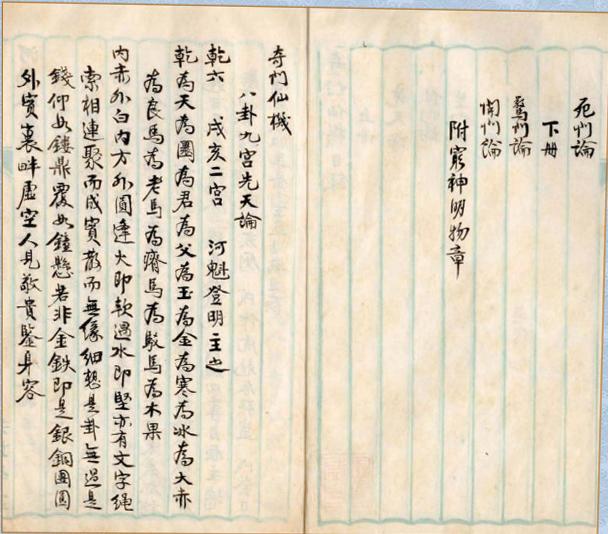 死門論
下册
驚門論
開門論
附窮神明物章
奇門仙機
八卦九宮先天論
乾六 戌亥二宮 河魁登明主之
乾為天為圜為君為父為玉為金為寒為冰為大赤
為良馬為老馬為瘠馬為駁馬為木果
内赤外白内方外圓逢火即軟遇水即堅亦有文字繩
索相連聚而成賓散而無緣細想是卦無過是
錢仰如鏤鼎覆如鐘懸若非金鉄即是銀銅團圓
外實裏畔虛空人見敬貴鑒身容